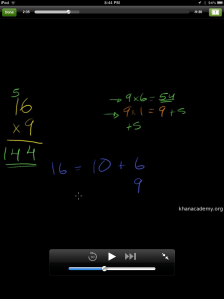 iPad
8:44 PM
Done
2:05
5
16
x 9
144
→ 9 x 6 = 54
→ 9 x 1 = 9 + 5
+5
16 = 10 + 6
9
khanacademy.org